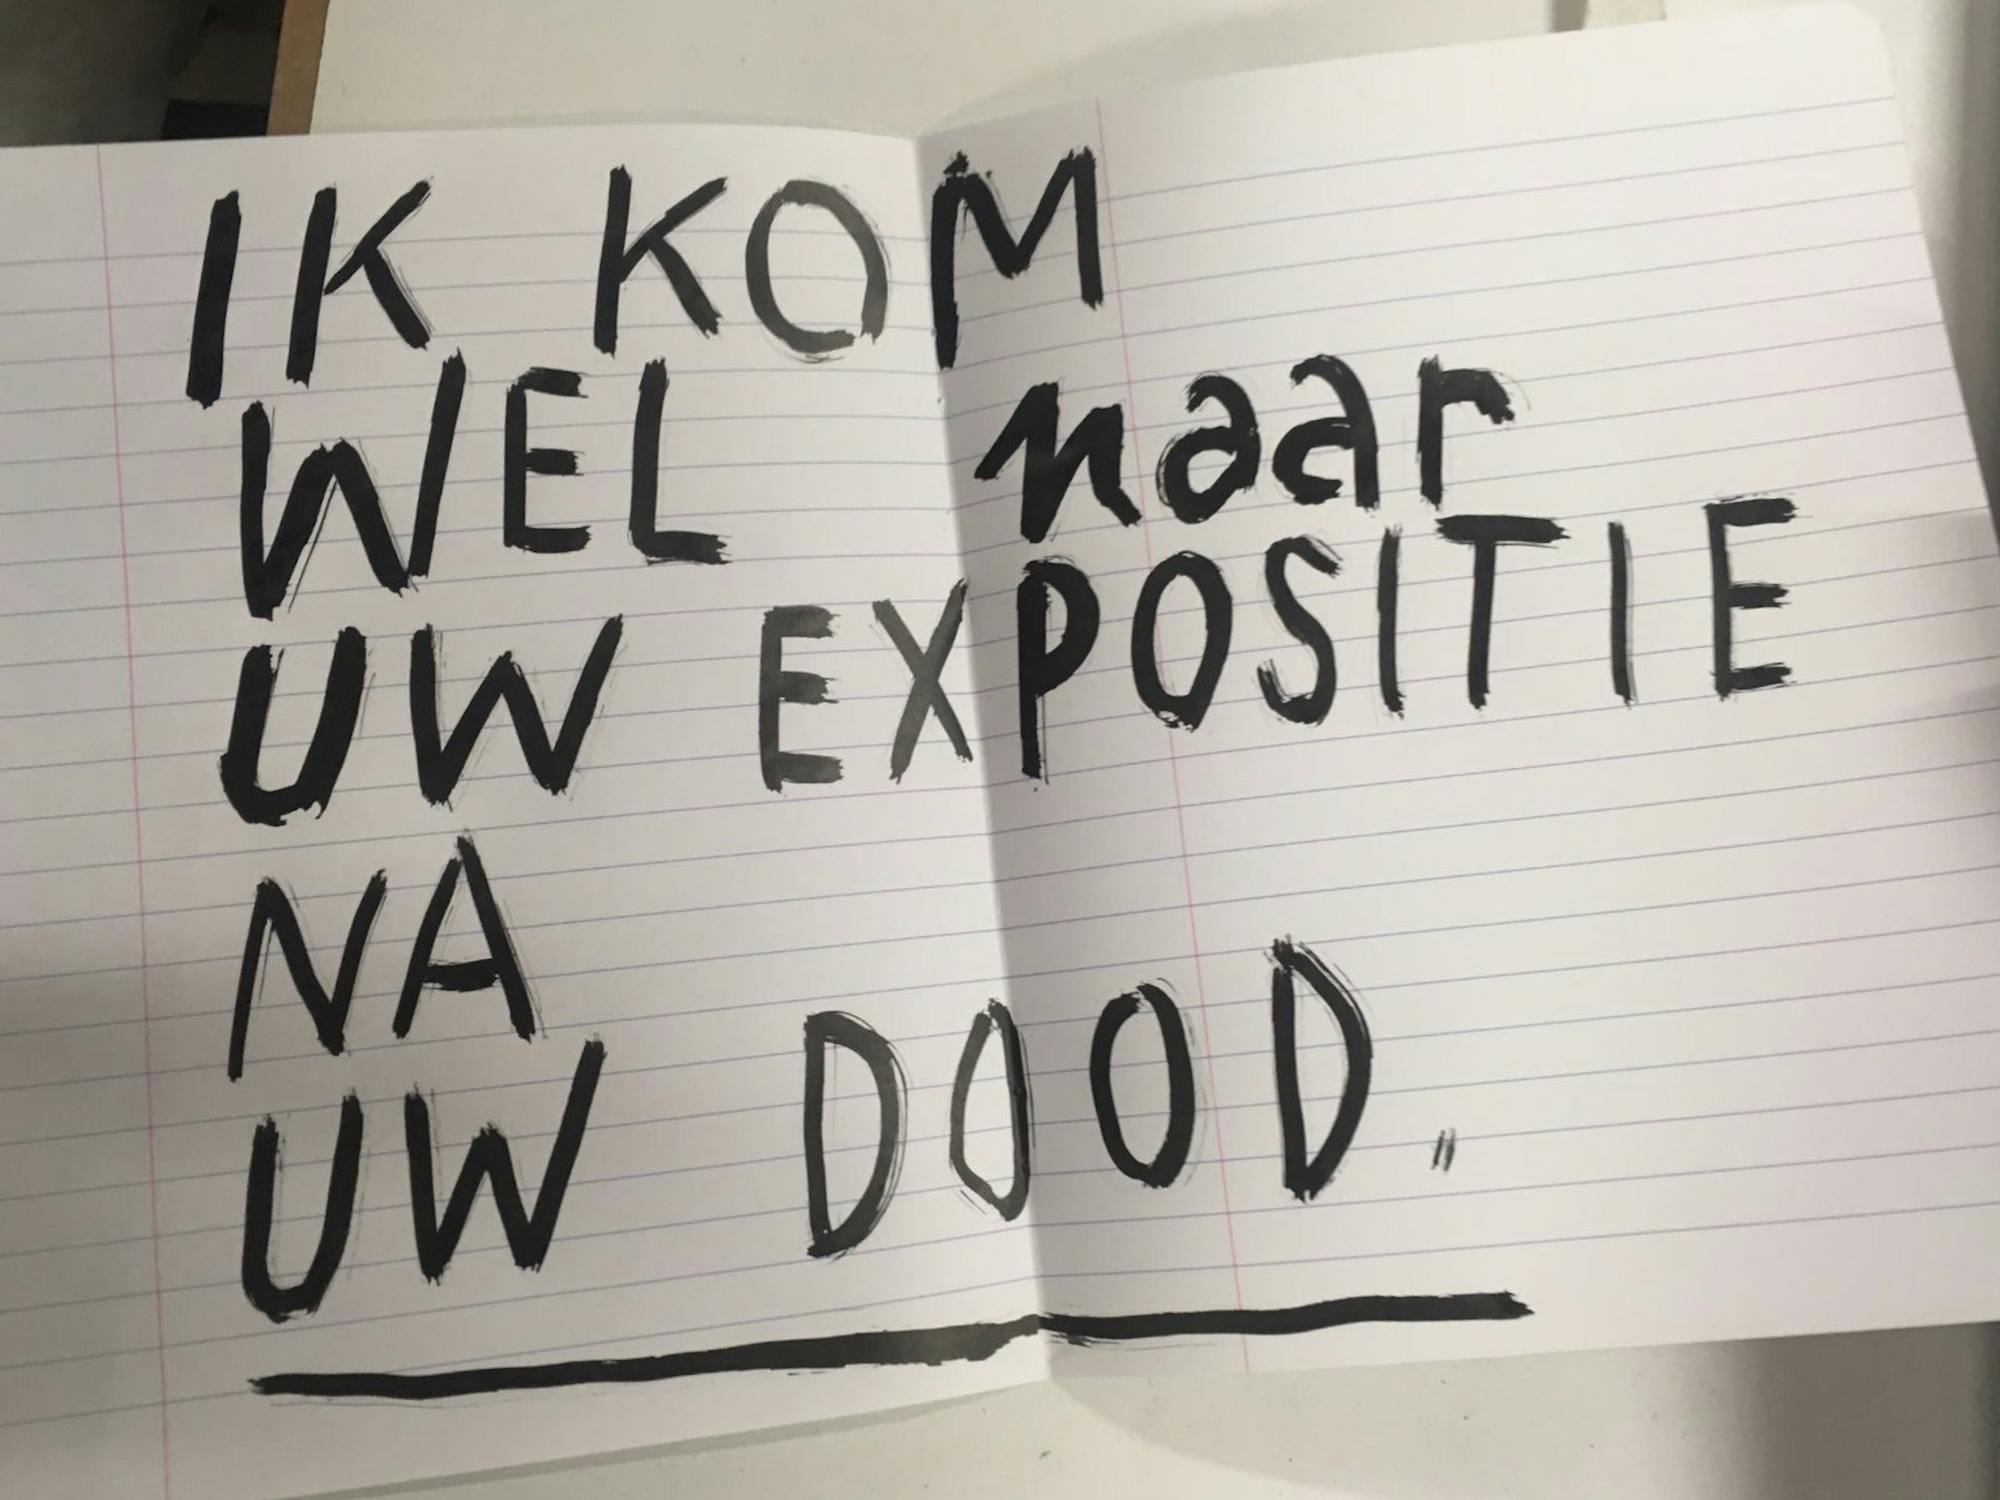 IK KOM
WEL naar
UW EXPOSITIE
NA
UW DOOD.